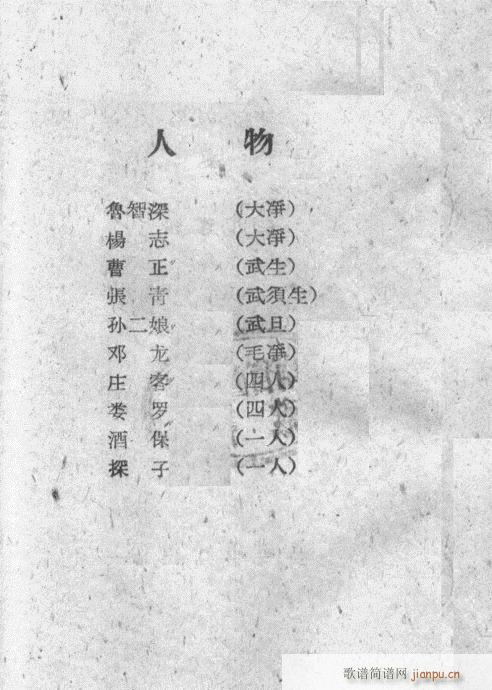 人 物
魯智深 (大淨)
楊 志 (大淨)
曹 正 (武生)
張 青 (武須生)
孙二娘 (武旦)
邓 龙 (毛淨)
庄 客 (四人)
娄 罗 (四人)
酒 保 (一人)
探 子 (一人)
歌谱简谱网 jianpu.cn